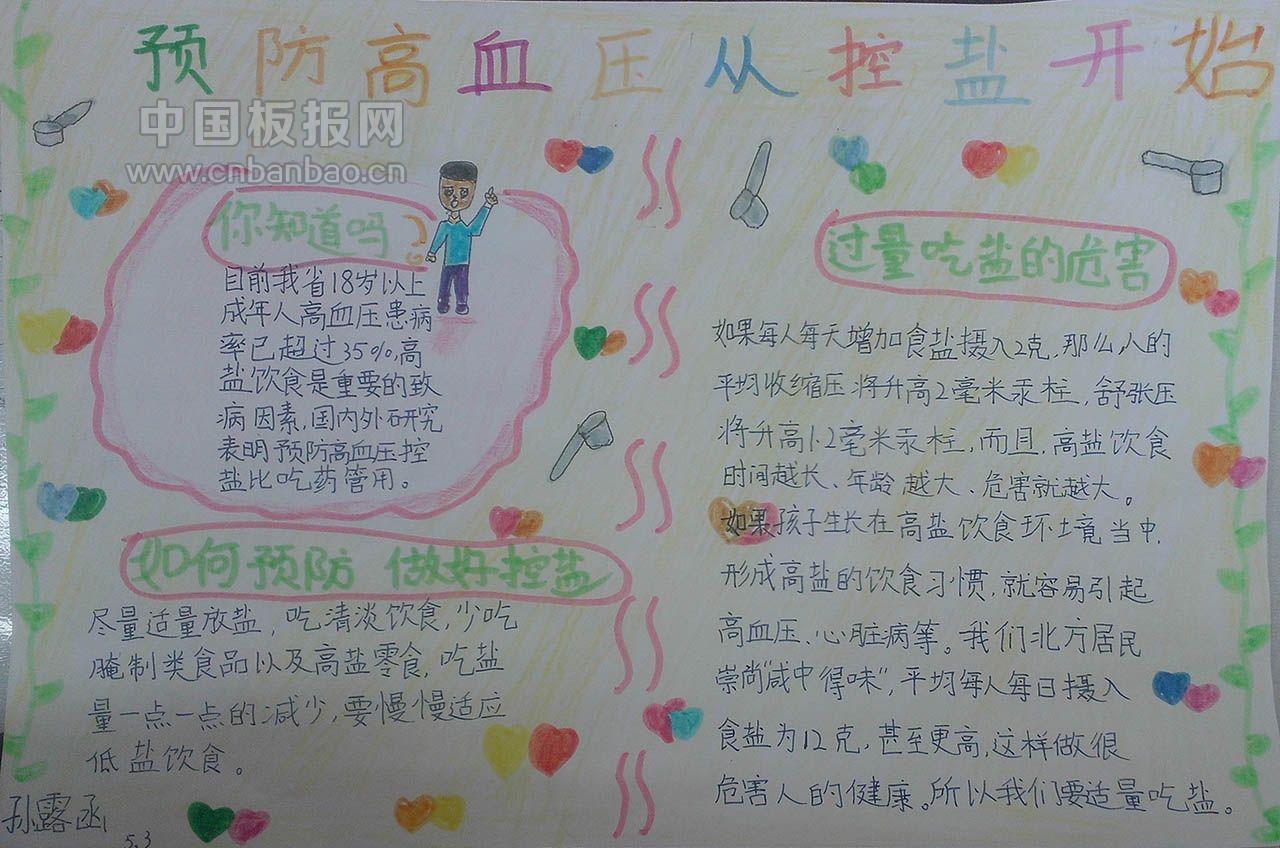 预防高血压从控盐开始
中国板报网
www.cnbanbao.cn
你知道吗?
目前我省18岁以上
成年人高血压患病
率已超过35%,高
盐饮食是重要的致
病因素,国内外研究
表明预防高血压控
盐比吃药管用。
如何预防 做好控盐
尽量适量放盐,吃清淡饮食,少吃
腌制类食品以及高盐零食,吃盐
量一点一点的减少,要慢慢适应
低盐饮食。
孙露函
5.3
过量吃盐的危害
如果每人每天增加食盐摄入2克,那么,人的
平均收缩压将升高2毫米汞柱,舒张压
将升高1.2毫米汞柱,而且,高盐饮食
时间越长、年龄越大、危害就越大。
如果孩子生长在高盐饮食环境当中,
形成高盐的饮食习惯,就容易引起
高血压、心脏病等。我们北方居民
崇尚“咸中得味”,平均每人每日摄入
食盐为12克,甚至更高,这样做很
危害人的健康。所以我们要适量吃盐。